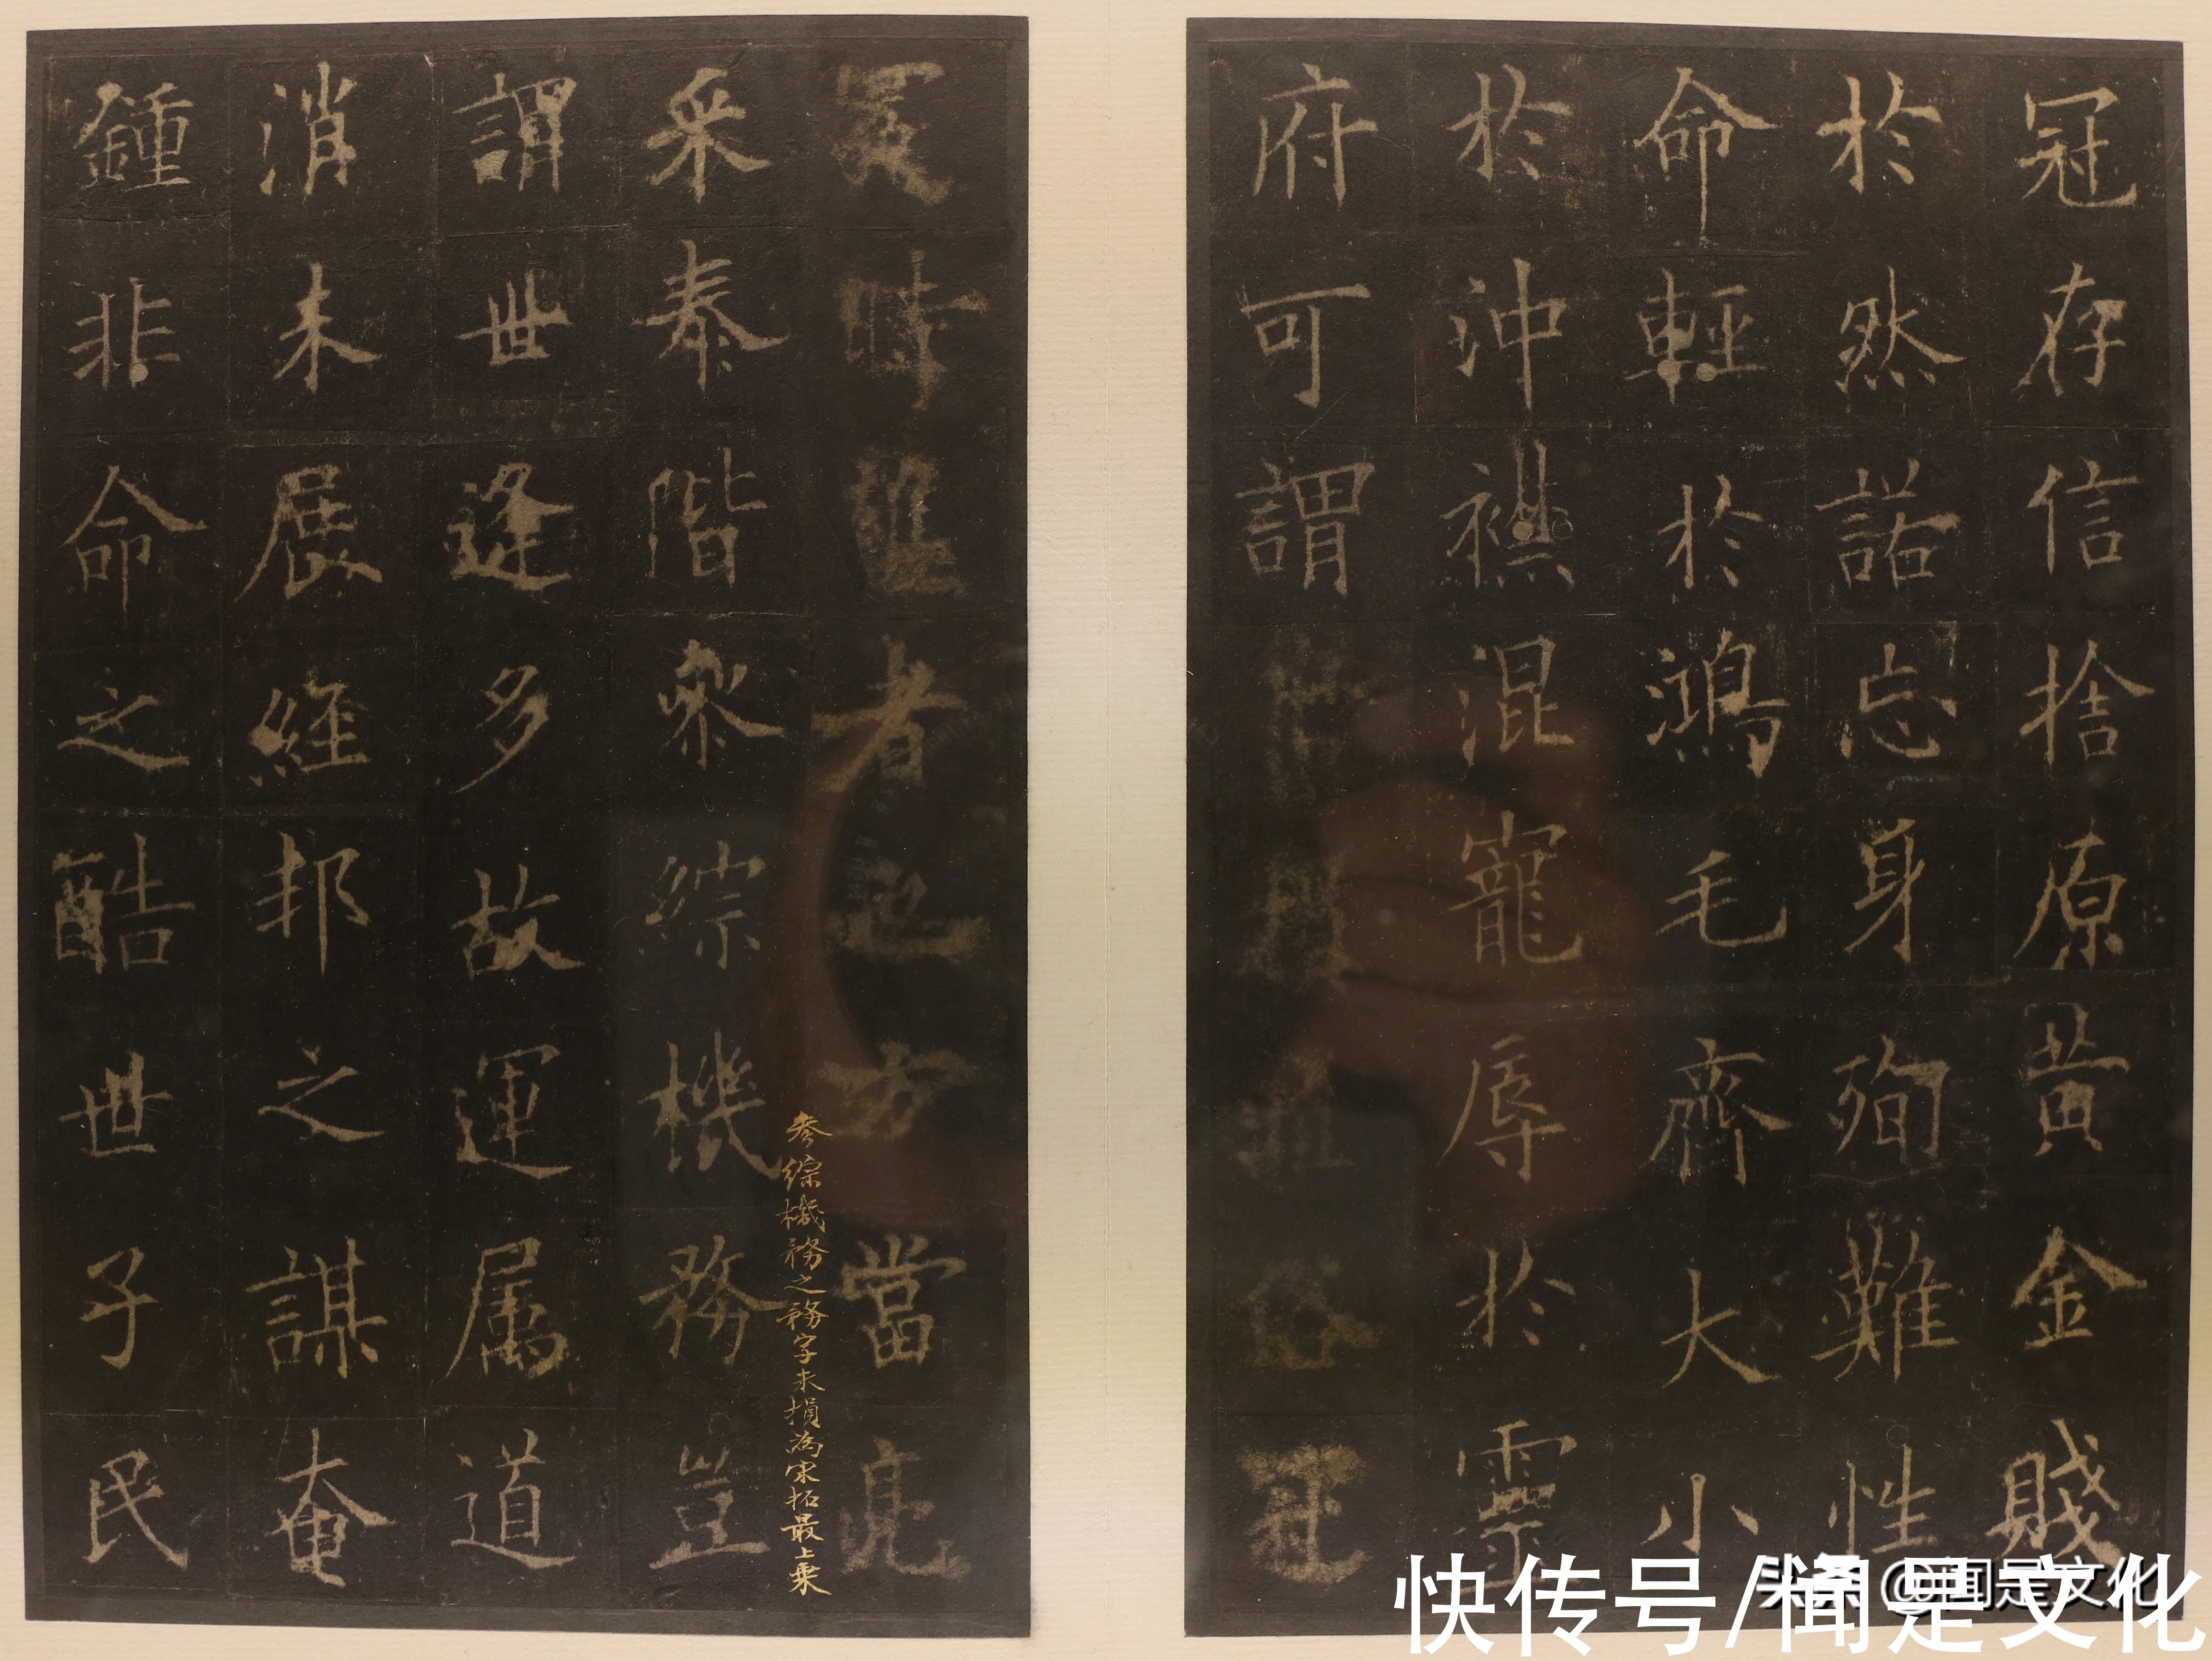 冠存信捨原黄金賤
於然諾忘身殉難性
命輕於鴻毛齊大小
於沖襟混寵辱於靈
府可謂冠
冕時雄者也方當亮
采泰階叅綜機務豈
謂世逢多故運属道
消未展經邦之謀奄
鍾非命之酷世子民
參綜機務之務字未損為宋拓最上乘
头条 @闻是文化
快传号/闻是文化